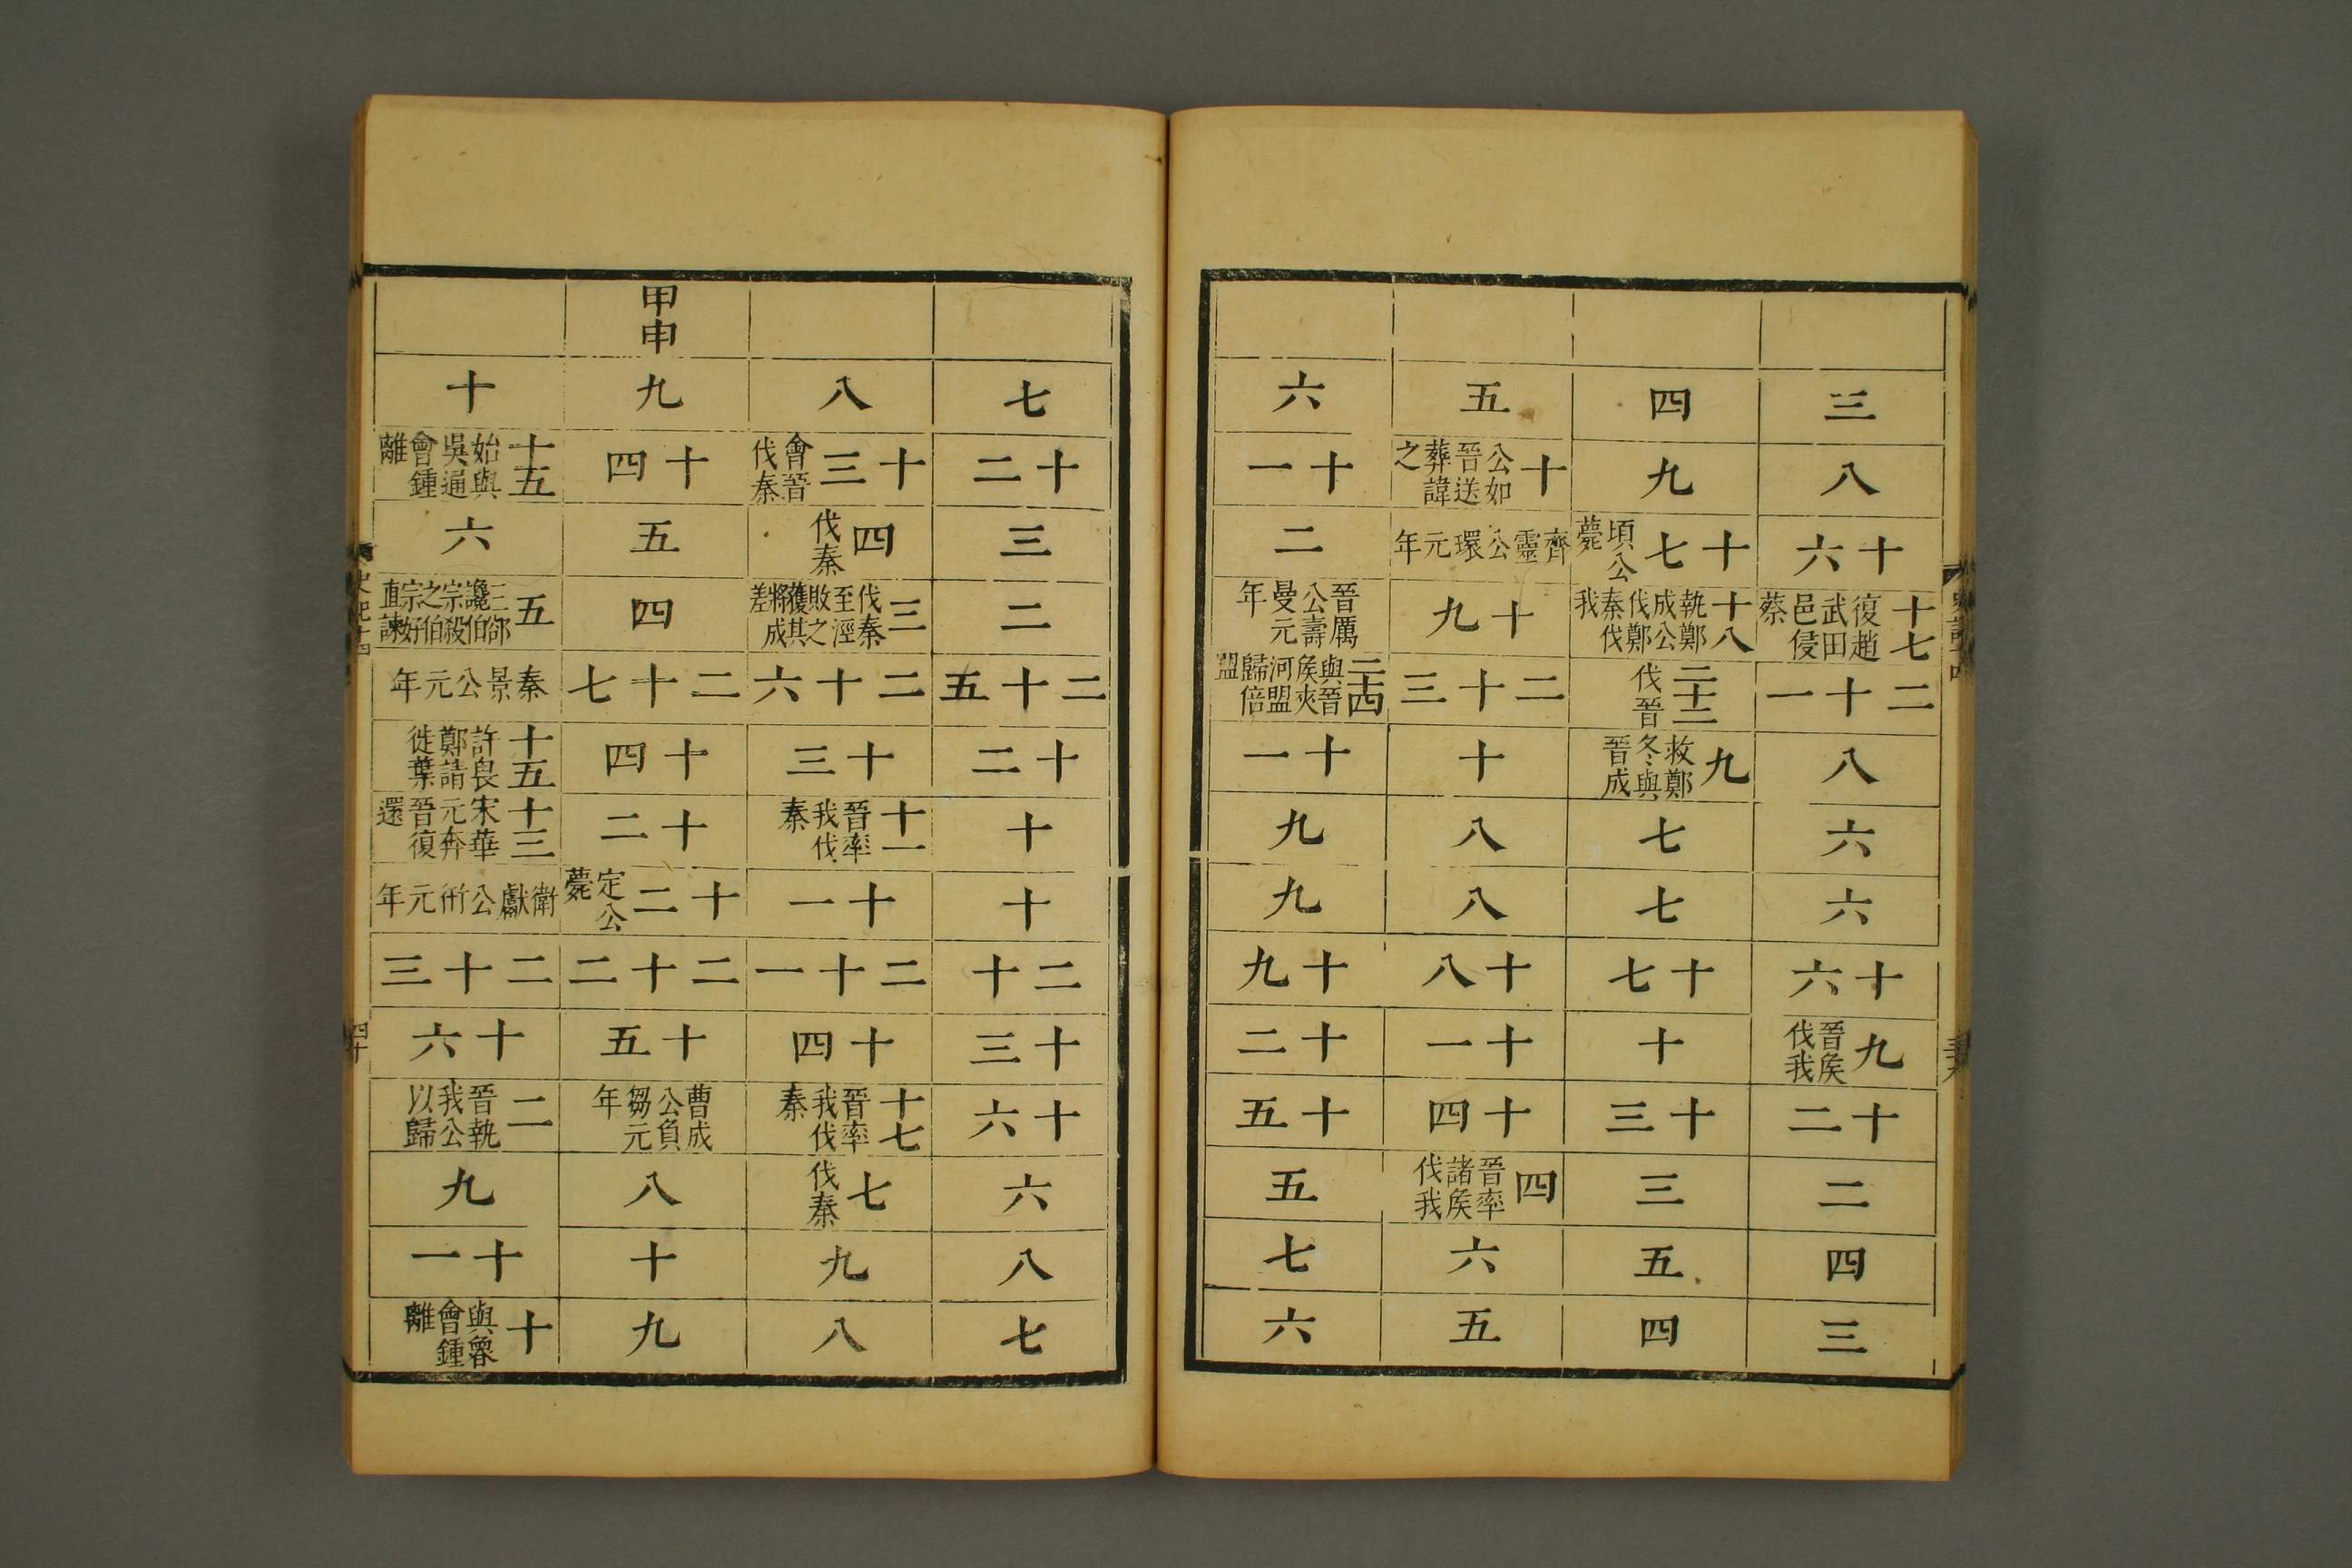 史記十四
三
八
十六
十七復趙武田邑侵蔡
二十一
八
六
六
十六
九晉矦伐我
十二
二
四
三
四
九
十七頃公薨
十八執鄭成公伐鄭秦伐我
二十二伐晉
九救鄭冬與晉成
七
七
十七
十
十三
三
五
四
五
十公如晉送葬諱之
齊靈公環元年
十九
二十三
十
八
八
十八
十一
十四
四晉率諸矦伐我
六
五
六
十一
二
晉厲公壽曼元年
二十四與晉矦夾河盟歸倍盟
十一
九
九
十九
十二
十五
五
七
六
七
十二
三
二
二十五
十二
十
十
二十
十三
十六
六
八
七
八
十三會晉伐秦
四伐秦
三伐秦至涇敗之獲其將成差
二十六
十三
十一晉率我伐秦
十一
二十一
十四
十七晉率我伐秦
七伐秦
九
八
甲申
九
十四
五
四
二十七
十四
十二
十二定公薨
二十二
十五
曹成公負芻元年
八
十
九
十
十五始與吳通會鍾離
六
五三郤讒伯宗殺之伯宗好直諫
秦景公元年
十五許畏鄭請徙葉
十三宋華元奔晉復還
衛獻公衎元年
二十三
十六
二晉執我公以歸
九
十一
十與魯會鍾離
史記十四
四十